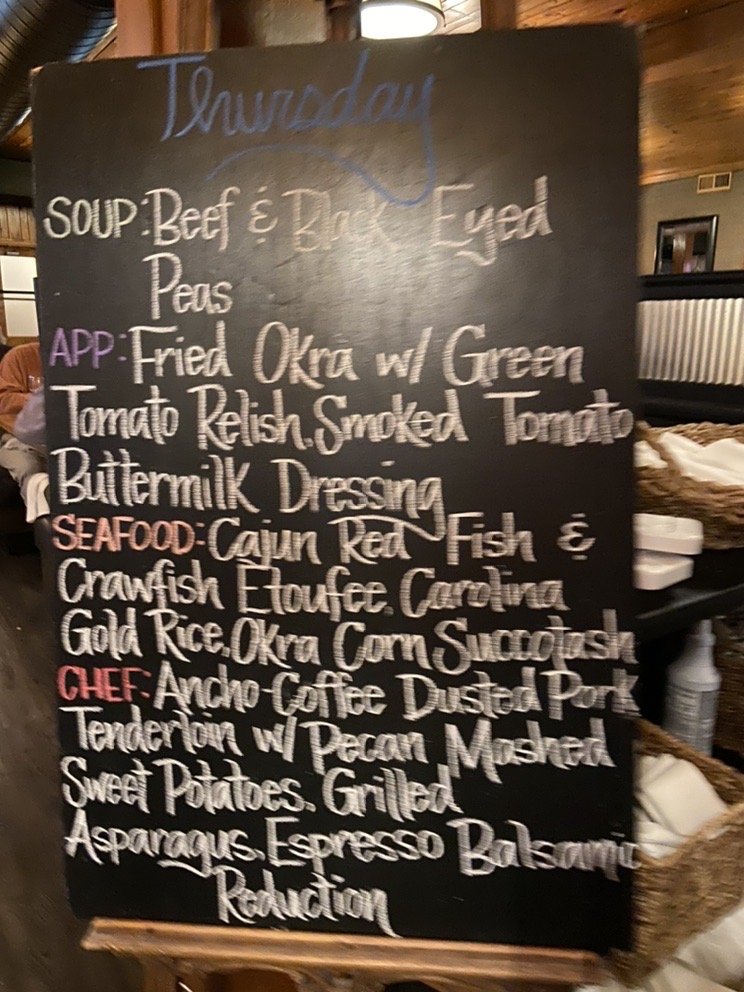 Thursday
SOUP: Beef & Black Eyed
Peas
APP: Fried Okra w/ Green
Tomato Relish, Smoked Tomato
Buttermilk Dressing
SEAFOOD: Cajun Red Fish &
Crawfish Etoufee, Carolina
Gold Rice, Okra Corn Succotash
CHEF: Ancho-Coffee Dusted Pork
Tenderloin w/ Pecan Mashed
Sweet Potatoes, Grilled
Asparagus, Espresso Balsamic
Reduction